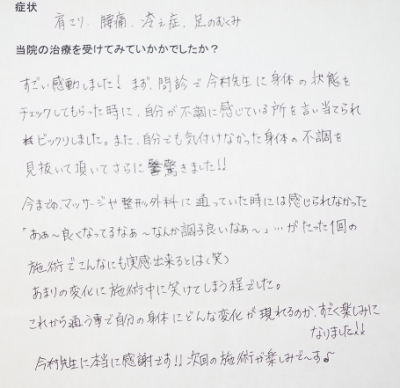 症状
肩こり、腰痛、冷え症、足のむくみ
当院の治療を受けてみていかかでしたか？
すごい感動しました！まず、問診で今村先生に身体の状態を
チェックしてもらった時に、自分が不調に感じている所を言い当てられ
ビックリしました。また、自分でも気付けなかった身体の不調を
見抜いて頂いてさらに驚きました!!
今までの、マッサージや整形外科に通っていた時には感じられなかった
「あぁ〜良くなってるなぁ〜なんか調子良いなぁ〜」…がたった1回の
施術でこんなにも実感出来るとは(笑)
あまりの変化に施術中に笑けてしまう程でした。
これから通う事で自分の身体にどんな変化が現れるのか、すごく楽しみに
なりました!!
今村先生に本当に感謝です!!次回の施術が楽しみで〜す♪